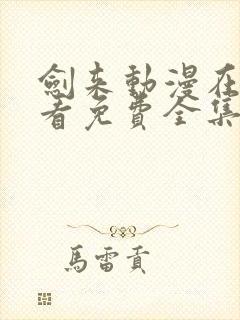 劍来動漫在
看免費全集
馬雷貢